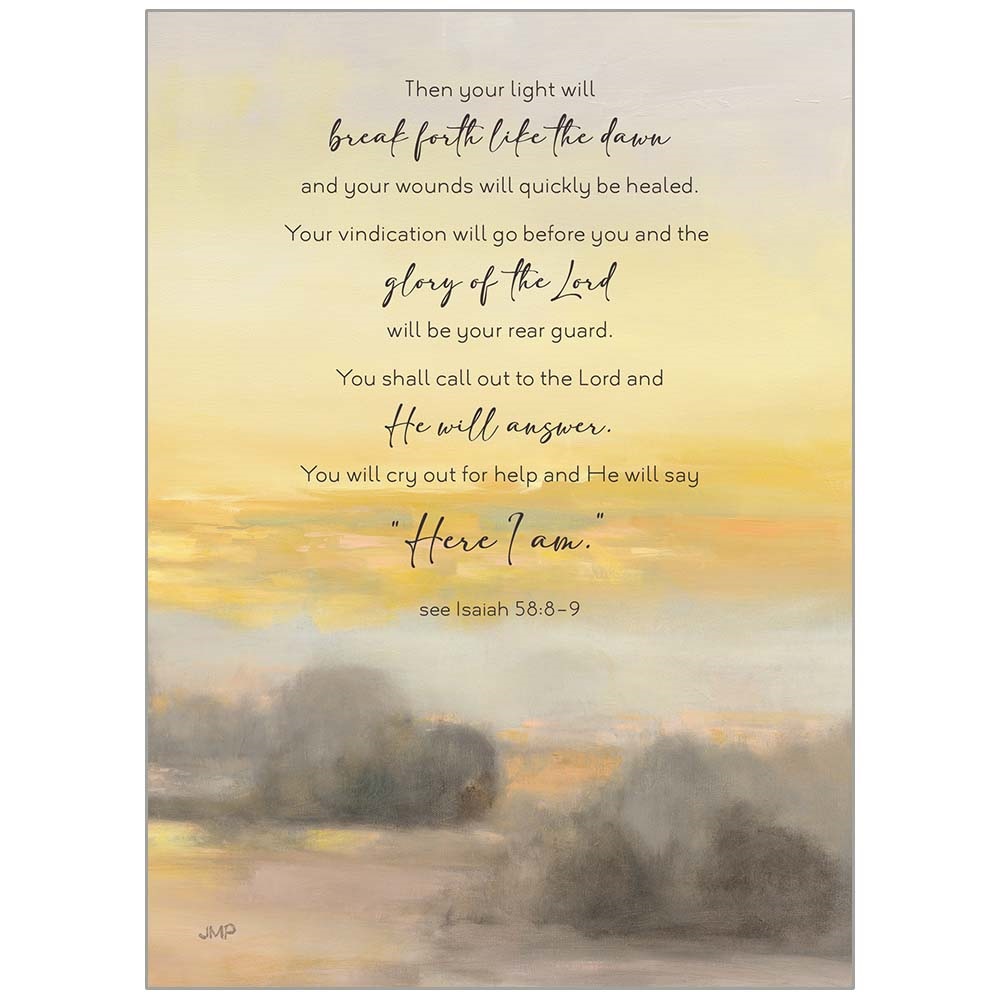 Then your light will
break forth like the dawn
and your wounds will quickly be healed.
Your vindication will go before you and the
glory of the Lord
will be your rear guard.
You shall call out to the Lord and
He will answer.
You will cry out for help and He will say
"Here I am."
see Isaiah 58:8–9
JMP